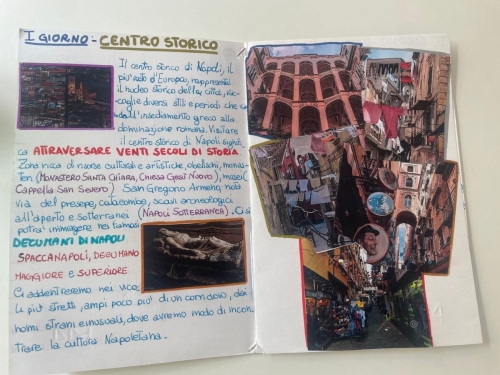 I GIORNO - CENTRO STORICO
Il centro storico di Napoli, il
più vasto d'Europa, rappresenta
il nucleo storico della città, rac-
coglie diversi stili e periodi che
dall'insediamento greco alla
dominazione romana. Visitare
il centro storico di Napoli signifi-
ca ATTRAVERSARE VENTI SECOLI DI STORIA
Zona ricca di risorse culturali e artistiche, obelischi, monas-
teri (MONASTERO SANTA CHIARA, CHIESA GESÙ NUOVO), musei (
CAPPELLA SAN SEVERO) San Gregorio Armeno, nota
via del presepe, catacombe, scavi archeologici
all'aperto e sotterranei (NAPOLI SOTTERRANEA). Ci si
potrà immergere nei famosi
DECUMANI DI NAPOLI
SPACCANAPOLI, DECUMANO
MAGGIORE E SUPERIORE
Ci addentreremo nei vicoli
più stretti, ampi poco più di un corridoio, dai
nomi strani e inusuali, dove avremo modo di incon-
trare la cultura Napoletana.